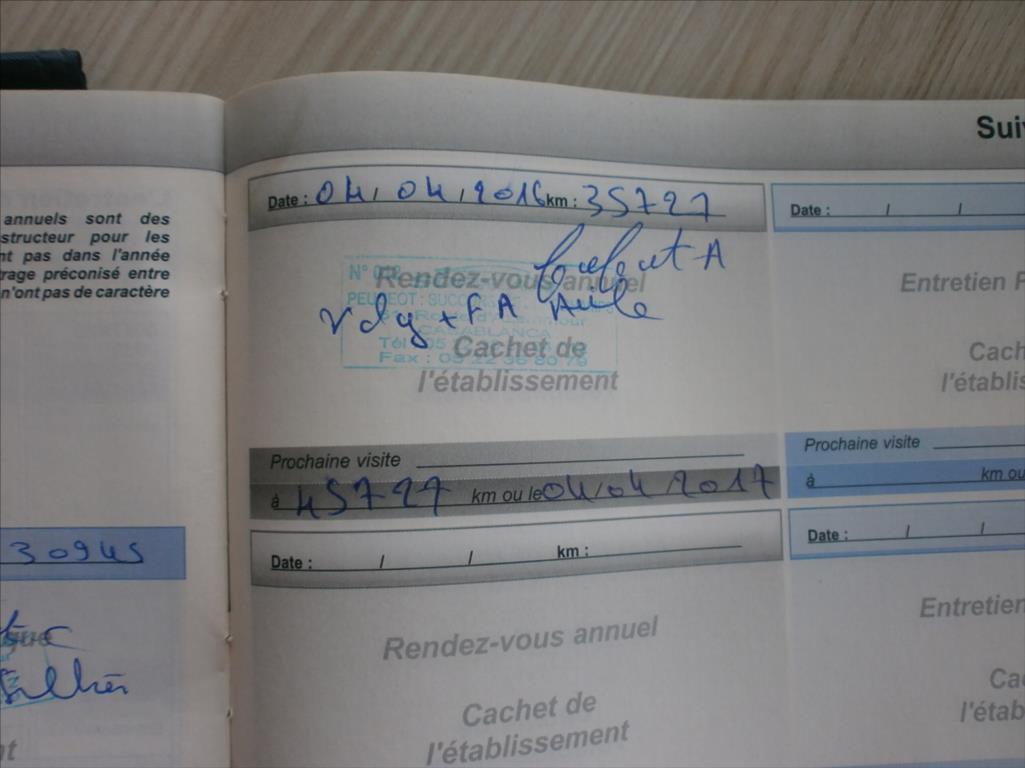 annuels sont des
structeur pour les
nt pas dans l'année
trage préconisé entre
n'ont pas de caractère
30945
Suiv
Date : 04 / 04 / 2016 km : 35727
Rendez-vous annuel
vdg + FA
PEUGEOT
CASABLANCA
Cachet de
l'établissement
Prochaine visite
à 45727 km ou le 04/04/2017
Date : / / km :
Rendez-vous annuel
Cachet de
l'établissement
Date : / /
Entretien
Cach
l'établis
Prochaine visite
à km ou
Date : / /
Entretien
Ca
l'étab